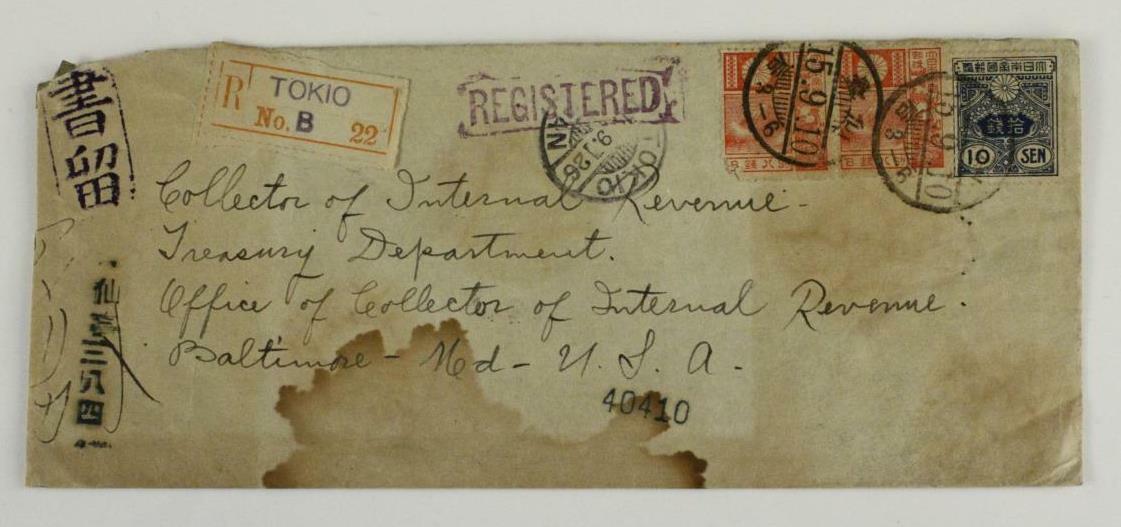 書留
R
TOKIO
No. B 22
REGISTERED
9.1.26
15.9.10
拾銭
10 SEN
Collector of Internal Revenue -
Treasury Department.
Office of Collector of Internal Revenue.
Baltimore - Md - U. S. A.
40410